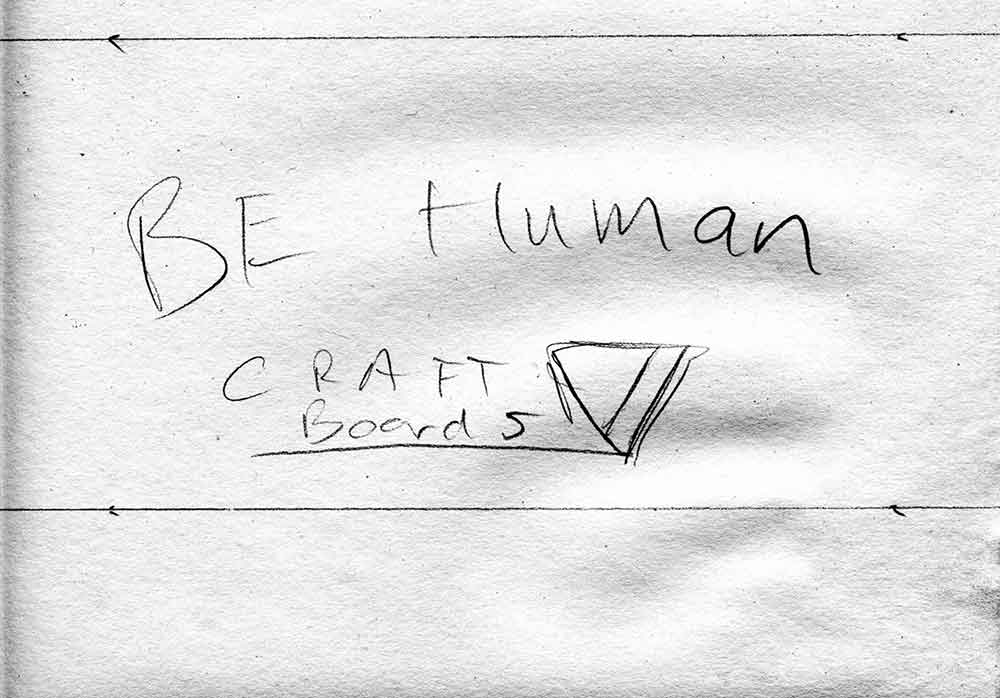 BE Human
CRAFT
Boards